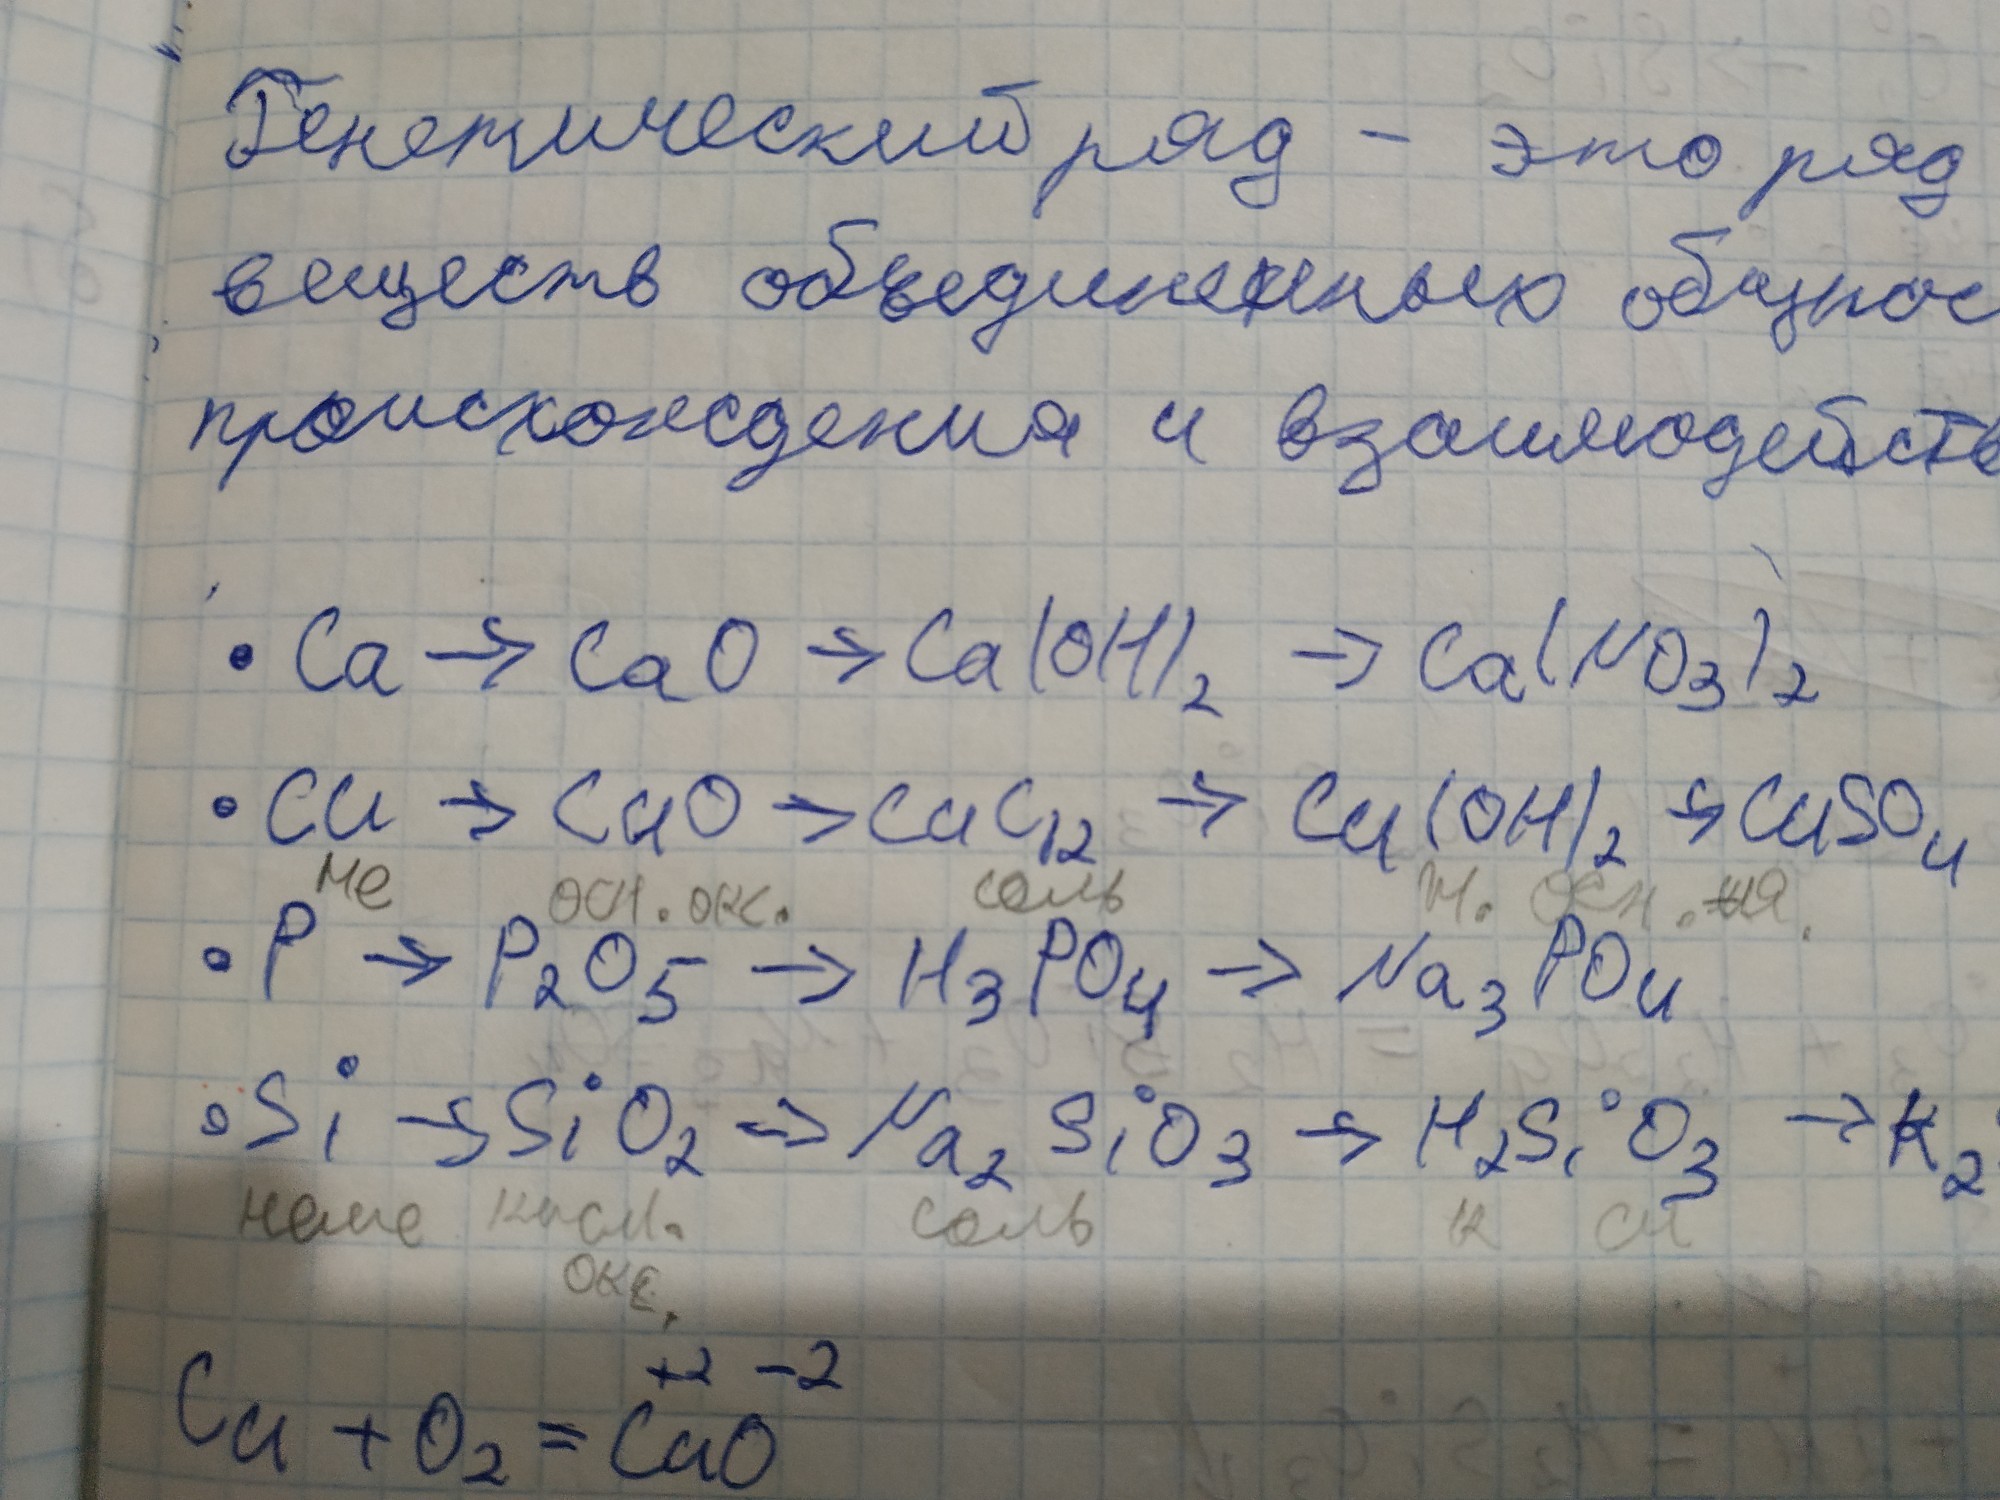 Генетический ряд - это ряд
веществ объединенных общнос
происхождения и взаимодейств
• Ca → CaO → Ca(OH)2 → Ca(NO3)2
• Cu → CuO → CuCl2 → Cu(OH)2 → CuSO4
Ме осн. окс. соль н. осн.
• P → P2O5 → H3PO4 → Na3PO4
• Si → SiO2 → Na2SiO3 → H2SiO3 → K2
неме кисл. соль к
окс.
+2 -2
Cu + O2 = CuO